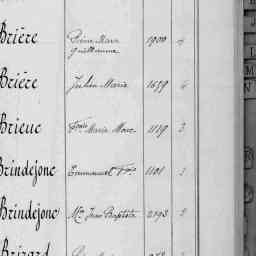 Brière Pierre Marie 1900 4
Guillaume
Brière Julien Marie 1659 4
Brieuc Fçois Marie Marc 1119 3
Brindejonc Emmanuel Fçois 1101 1
Brindejonc Mie Jean Baptiste 2193 2
Brizard